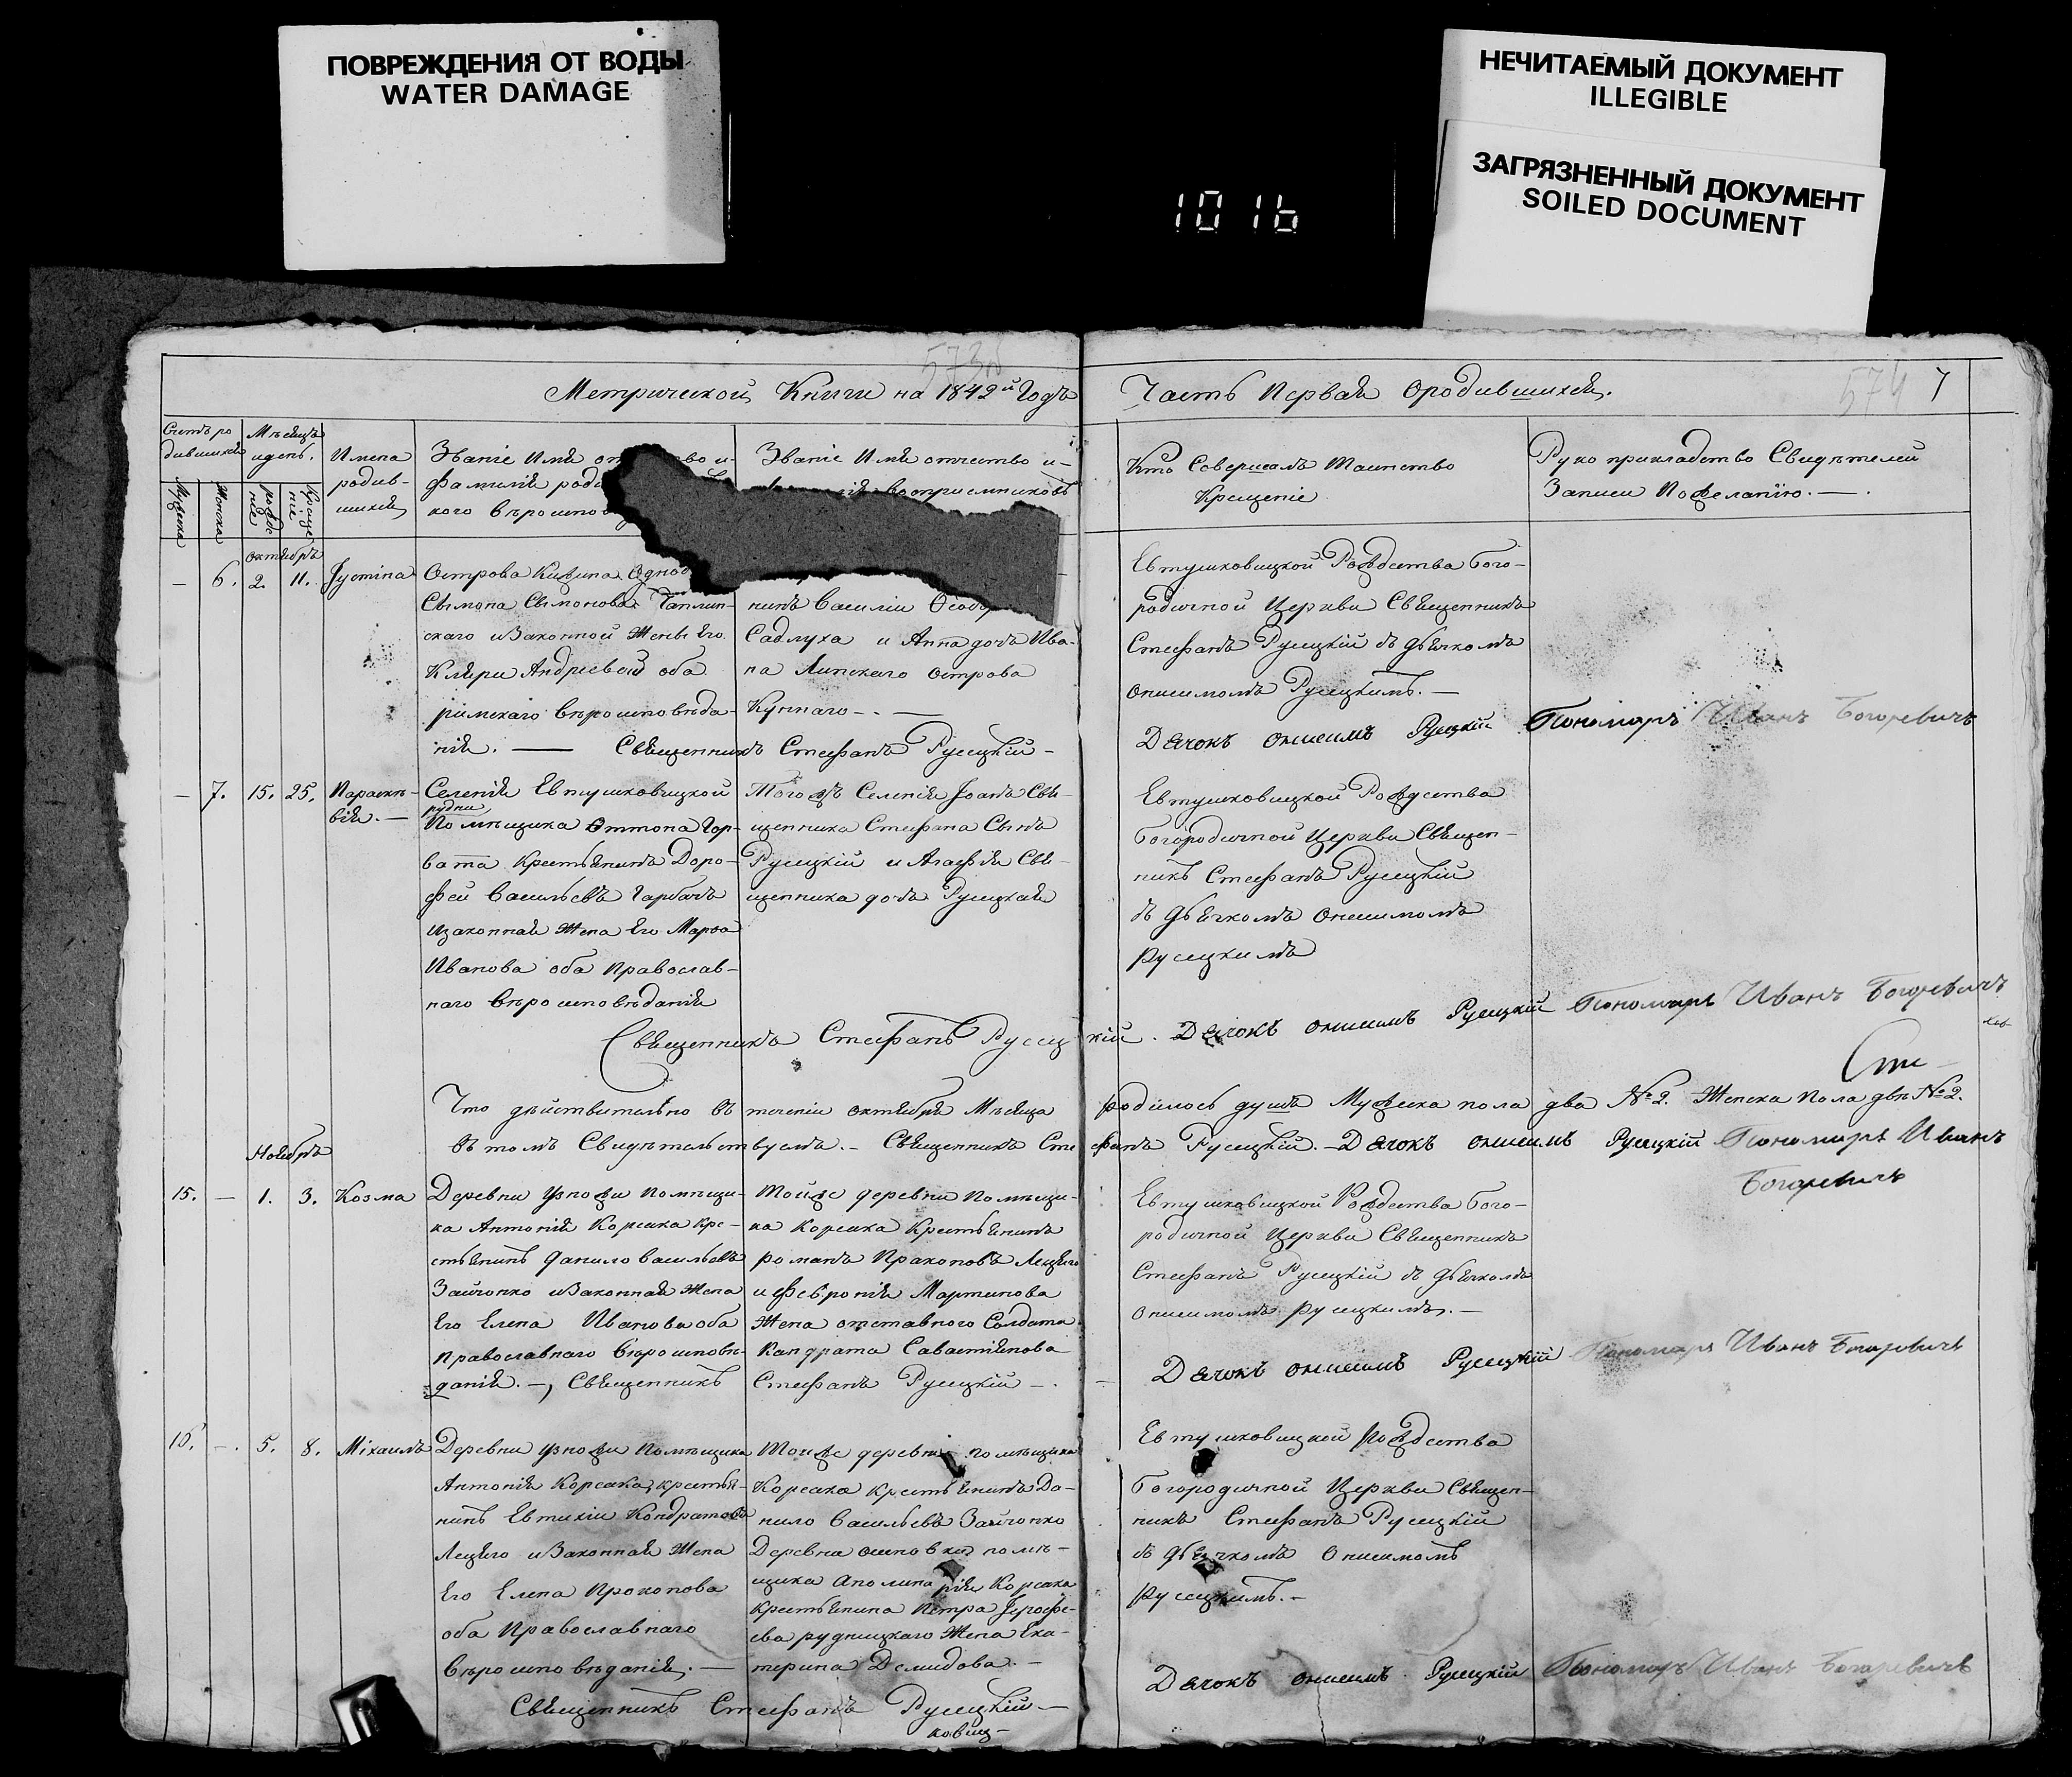 ПОВРЕЖДЕНИЯ ОТ ВОДЫ
WATER DAMAGE
НЕЧИТАЕМЫЙ ДОКУМЕНТ
ILLEGIBLE
ЗАГРЯЗНЕННЫЙ ДОКУМЕНТ
SOILED DOCUMENT
1016
574 7
Метрической Книги на 1842й Годъ Часть Первая ородившихся.
Счетъ ро
дившихся
Мѣсяцъ
идень.
Мужска
Женска
рожде
ніе
Креще
ніе
Имена
родив-
шихся
Званіе Имя
Фамилія
кого вѣроисповѣ
Званіе Имя отчество и-
воспріемниковъ
Кто Совершалъ Таинство
Крещеніе
Руко прикладство Свидѣтелей
Записи Пожеланію. —.
октября
— 6. 2. 11. Іустина
Острова
Сымона Сымонова
скаго изаконной Жены Его
Клары Андреевой оба
римскаго вѣроисповѣда-
нія. — Священникъ Стефанъ Русецкій -
нинъ Василій
Садлуха и Анна дочь Ива-
на Липскаго острова
Евтушковицкой Рождества Бого-
родичной Церкви Священникъ
Стефанъ Русецкій съ дьячкомъ
онисимомъ Русецкимъ. —
Дячокъ онисимъ Русецкій Пономаръ Иванъ Богаревичъ
— 7. 15. 25. Параске-
вія. —
Селенія Евтушковицкой
рудни
Помѣщика Оттона Гор-
вата Крестьянинъ Доро-
фей Васильевъ Гарбачъ
изаконная Жена Его Марѳа
Иванова оба Православ-
наго вѣроисповѣданія
Тогожъ Селенія Іоанъ Свя-
щенника Стефана Сынъ
Русецкій и Агафія Свя-
щенника дочь Русецкая
Евтушковицкой Рождества
Богородичной Церкви Священ-
никъ Стефанъ Русецкій
съ дьячкомъ Онисимомъ
Русецкимъ
Священникъ Стефанъ Русецкій. Дячокъ онисимъ Русецкій Пономаръ Иванъ Богаревичъ
Что дѣйствительно въ теченіи октября Мѣсяца родилось душъ Мужска пола два №2. Женска Пола двѣ №2.
въ томъ Свидѣтельствуемъ. - Священникъ Стефанъ Русецкій. - Дячокъ онисимъ Русецкій Пономаръ Иванъ
Богаревичъ
Ноября
15. — 1. 3. Козма
Деревни Узножи Помѣщи-
ка Антонія Корсака кре-
стьянинъ данило Васильевъ
Зайчонко изаконная Жена
Его Елена Иванова оба
Православнаго вѣроисповѣ-
данія. -, Священникъ Стефанъ Русецкій —.
Тойже деревни Помѣщи-
ка Корсака Крестьянинъ
романъ Прокоповъ Лецкго
и Февронія Мартинова
Жена отставного Солдата
Кандрата Савастіянова
Евтушковицкой Рождества Бого-
родичной Церкви Священникъ
Стефанъ Русецкій съ дьячкомъ
онисимомъ русецкимъ. —
Дячокъ онисимъ Русецкій Пономаръ Иванъ Богаревичъ
16. —. 5. 8. Міхаилъ
Деревни Узножи Помѣщика
Антонія Корсака, крестья-
нинъ Евтихій Кондратовъ
Лецкго изаконная Жена
Его Елена Прокопова
оба Православнаго
вѣроисповѣданія. —
Тоиже деревни помѣщика
Корсака Крестьянинъ Да-
нило Васильевъ Зайчонко
Деревна помѣ-
щика Аполинарія Корсака
Крестьянина Петра Іерофе-
ева рудницкаго Жена Ека-
терина Демидова. —
Евтушковицкой рождества
Богородичной Церкви Священ-
никъ Стефанъ Русецкій
съ дьячкомъ Онисимомъ
русецкимъ. -
Дячокъ онисимъ Русецкій Пономаръ Иванъ Богаревичъ
Священникъ Стефанъ Русецкій —
ковиц-